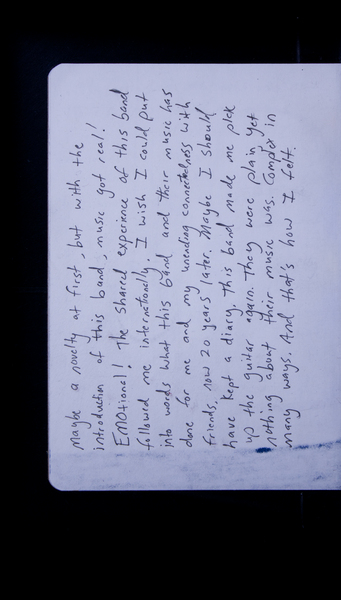 Maybe a novelty at first, but with the
introduction of this band, music got real!
EMOtional! The shared experience of this band
followed me internationally. I wish I could put
into words what this band and their music has
done for me and my unending connectedness with
friends, now 20 years later. Maybe I should
have kept a diary, this band made me pick
up the guitar again. They were plain yet
nothing about their music was. Complex in
many ways. And that's how I felt.